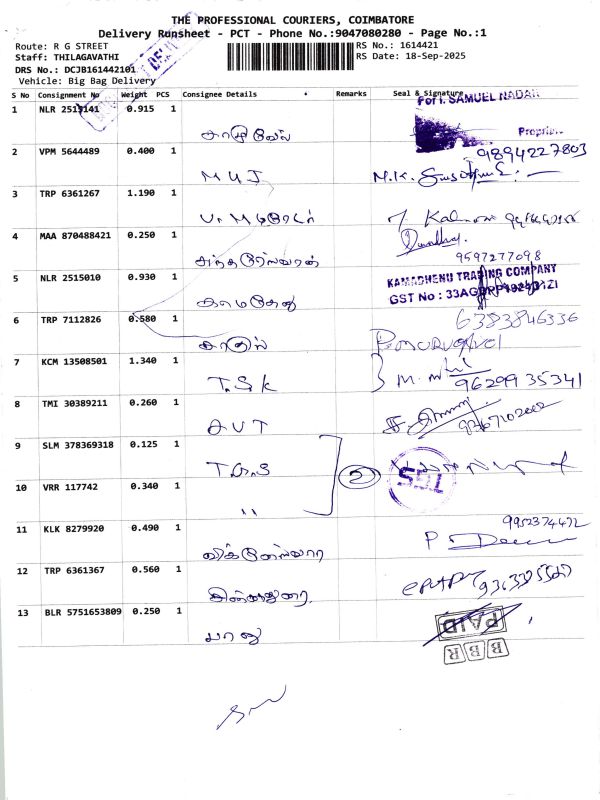 THE PROFESSIONAL COURIERS, COIMBATORE
Delivery Runsheet - PCT - Phone No.:9047080280 - Page No.:1
Route: R G STREET
RS No.: 1614421
Staff: THILAGAVATHI
RS Date: 18-Sep-2025
DRS No.: DCJB161442101
Vehicle: Big Bag Delivery
S No Consignment No Weight PCS Consignee Details Remarks Seal & Signature
For I. SAMUEL NADAR
1 NLR 2515141 0.915 1
Proprietor
சாமுவேல்
9894227803
2 VPM 5644489 0.400 1
M U J M.K.
3 TRP 6361267 1.190 1
4 MAA 870488421 0.250 1
9597277098
5 NLR 2515010 0.930 1
KAMADHENU TRADING COMPANY
GST No : 33AG
காமதேனு
6383846336
6 TRP 7112826 0.580 1
7 KCM 13508501 1.340 1
T.S.K M.
96299 35341
8 TMI 30389211 0.260 1
A V T
9 SLM 378369318 0.125 1
T.G.S 2 TGS
10 VRR 117742 0.340 1
"
9952374472
11 KLK 8279920 0.490 1
P
12 TRP 6361367 0.560 1
13 BLR 5751653809 0.250 1
பாலு PAID
B B R